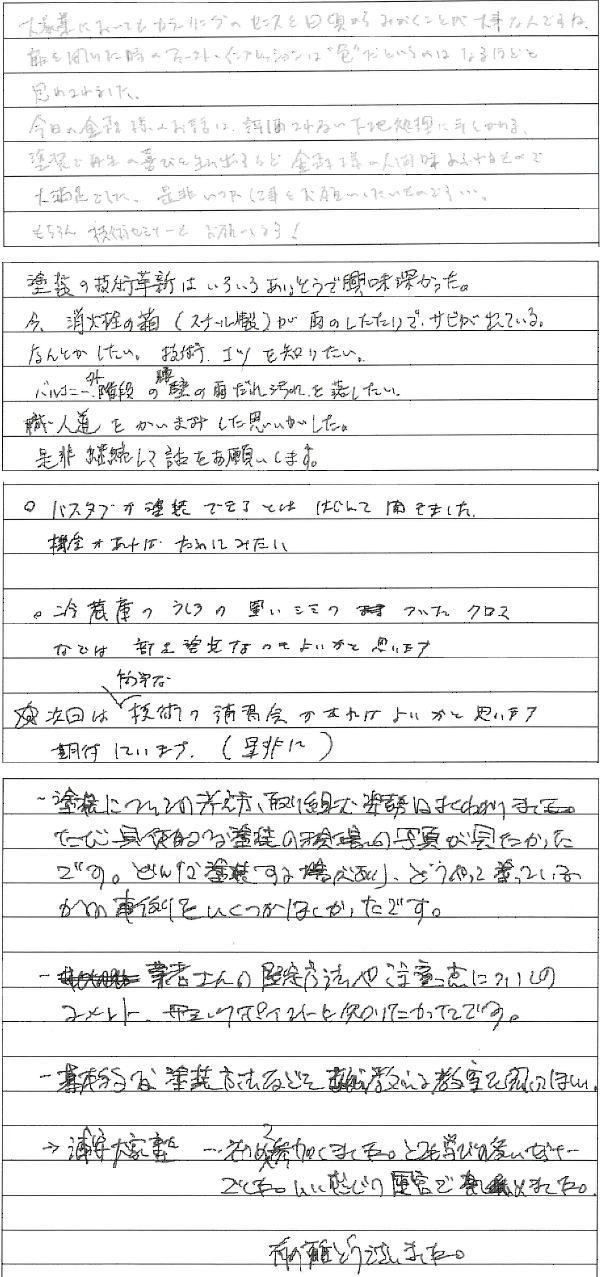 大家業においてもカラーリングのセンスを日頃からみがくことが大事なんですね。
ファースト・インプレッションは"色"だというのはなるほどと
思わされました。
今日の金子様のお話は、評価されない下地処理に手をかける、
塗装で再生の喜びを生み出すなど金子様の人間味あふれるもので
大満足でした。是非いつか仕事をお願いしたいものです…。
もちろん技術セミナーもお願いします!
塗装の技術革新はいろいろありそうで興味深かった。
今、消火栓の箱(スチール製)が雨のしたたりで、サビが出ている。
なんとかしたい。技術、コツを知りたい。
バルコニー、外階段の壁の雨だれ汚れを落したい。
職人道をかいまみした思いがした。
是非継続して話をお願いします。
○ バスタブが塗装できるとははじめて聞きました。
機会があればためしてみたい
○冷蔵庫のうらの黒いシミのついたクロス
などは部分塗装なのもよいかと思います
次回は効果的な技術の講習会があればよいかと思います
期待しています。(是非に)
- 塗装についての考え方、取り組む姿勢はよくわかりました。
ただ、具体的な塗装の現場の写真が見たかった
です。どんな塗装する場合あり、どうやって塗っているか
の事例をいくつかほしかったです。
- 業者さんの選定方法や注意点についての
コメント、ポイントを知りたかったです。
- 基本的な塗装方法などを教える教室を開いてほしい。
→ 浦安大家塾 …初めて参加しました。とても学びの多いセミナー
でした。いい感じの運営で楽しめました。
有難どうございました。